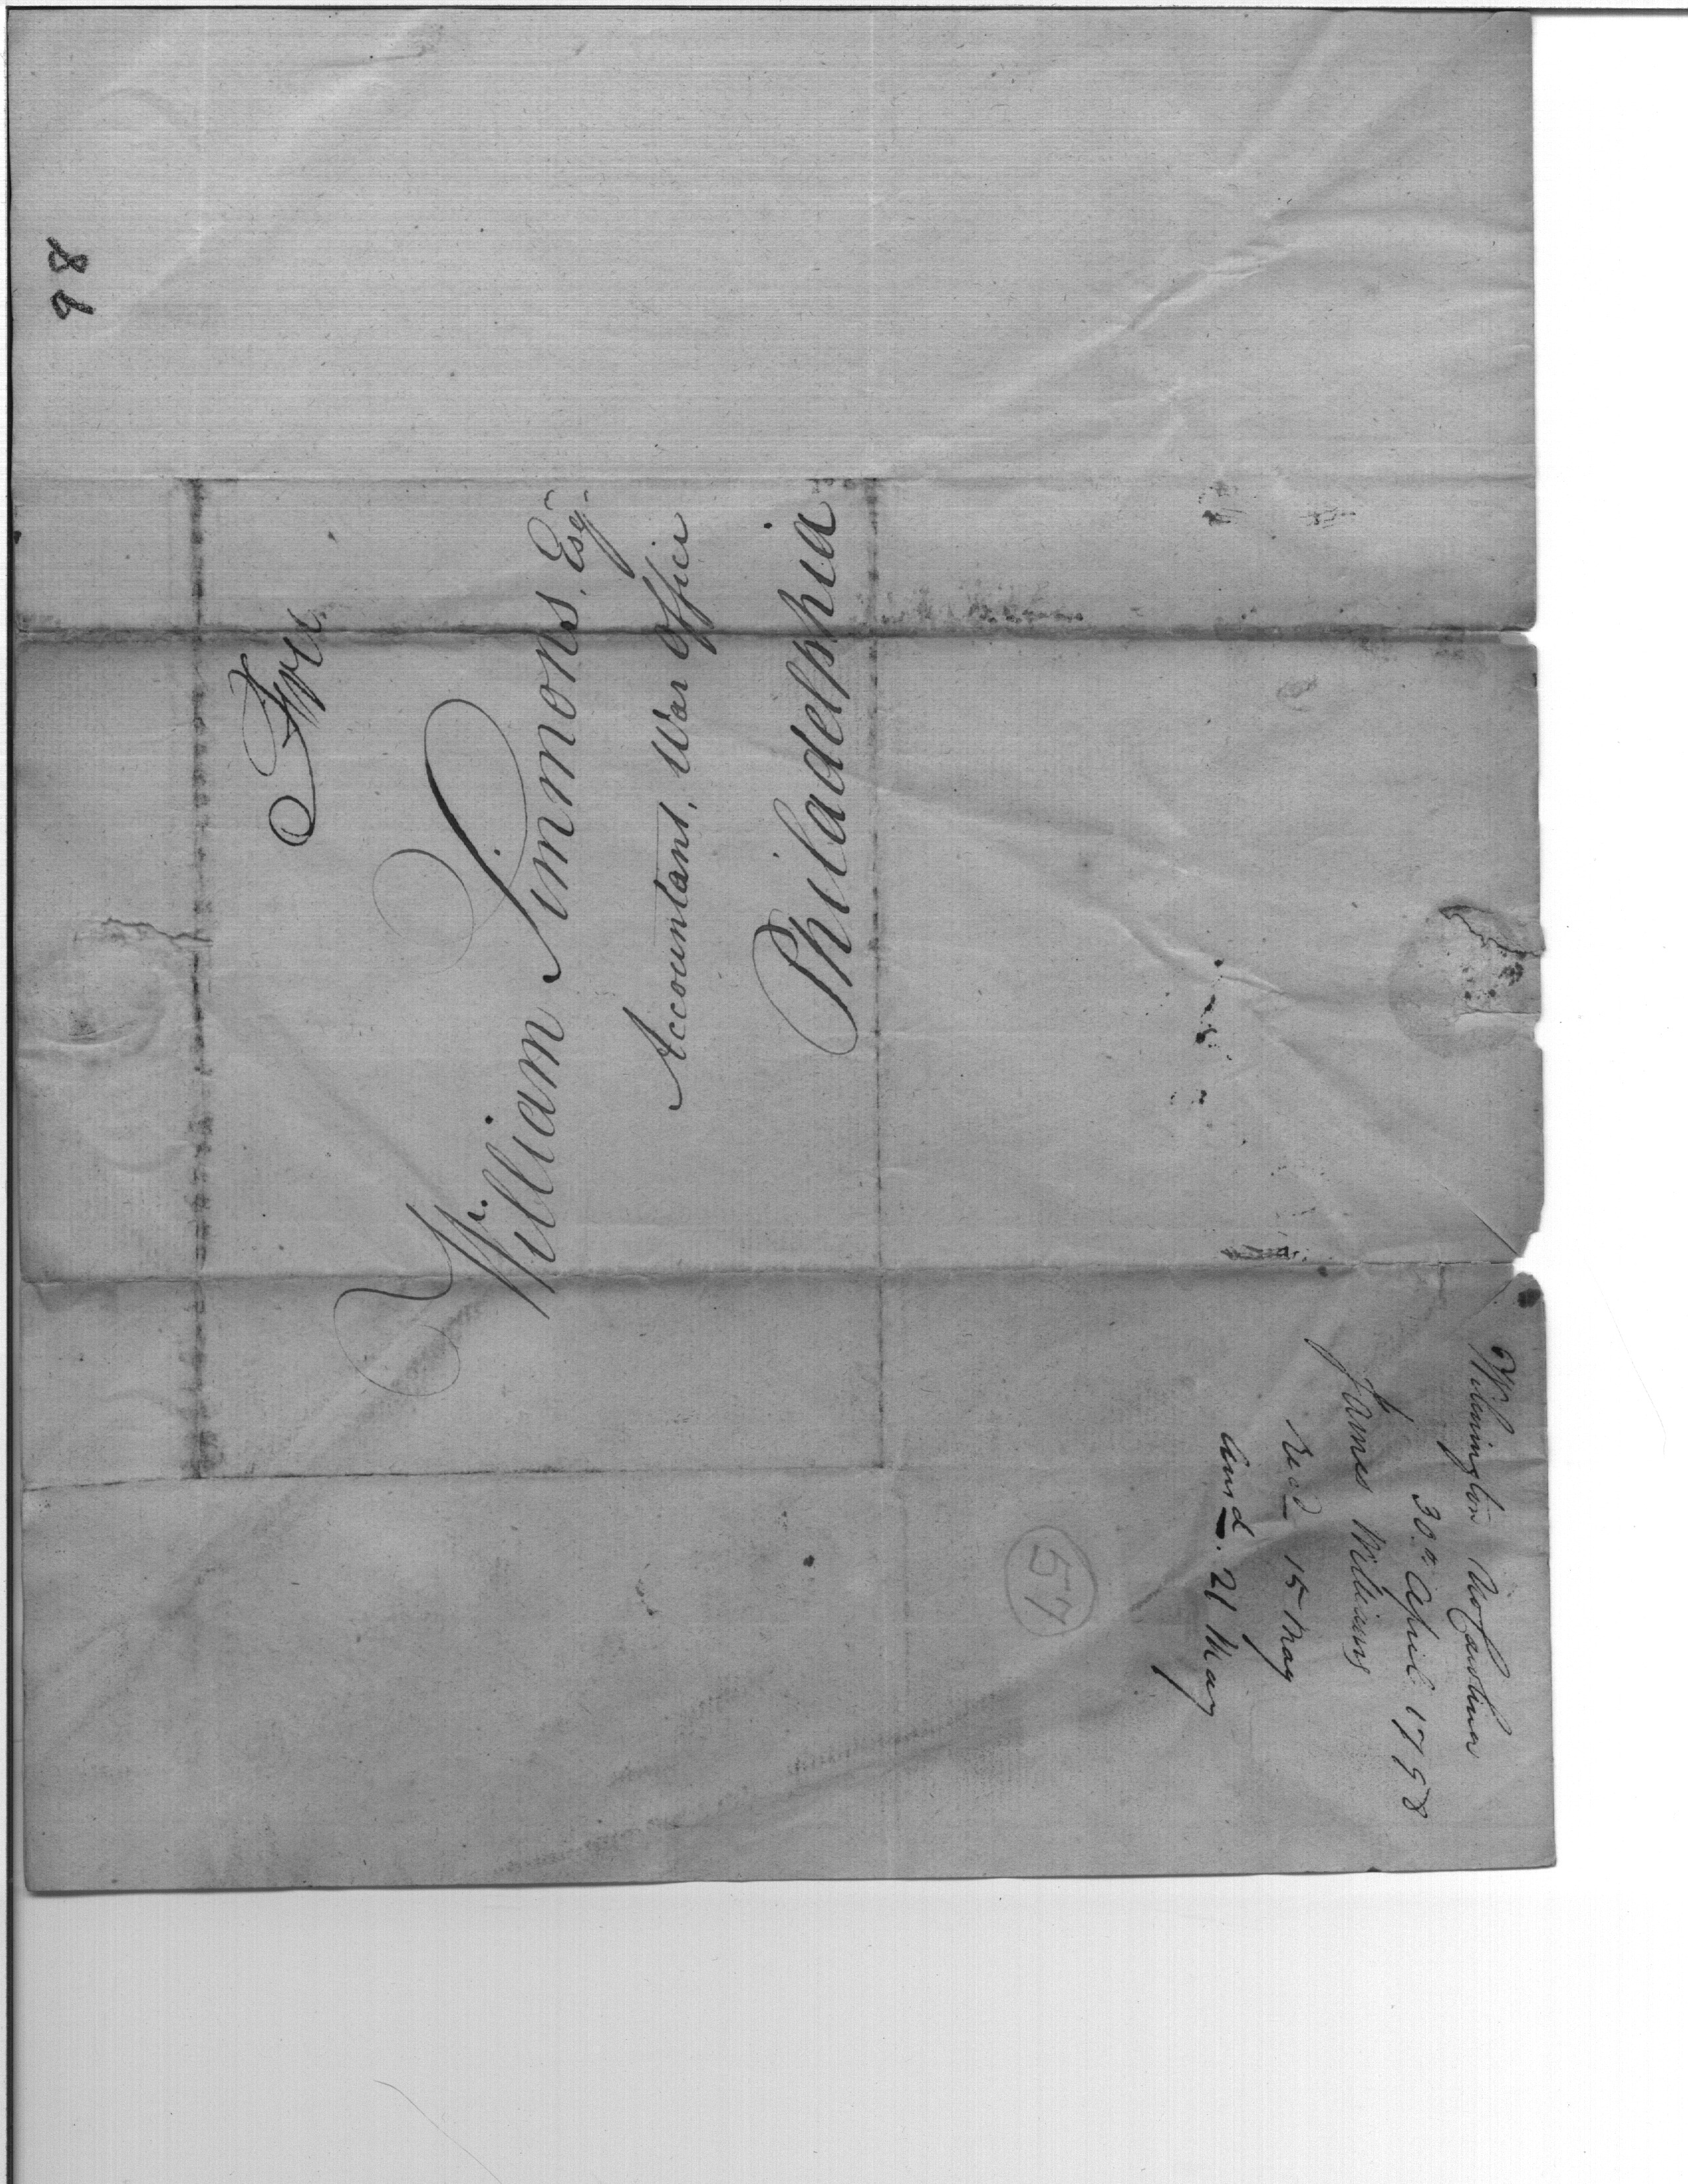 Free
William Simmons, Esqr.
Accountant, War Office
Philadelphia
Wilmington No Carolina
30th April 1798
James Williams
Recd 15 May
Ansd. 21 May
57
98